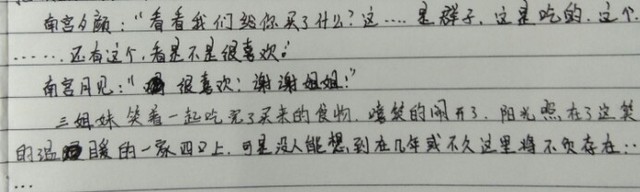 南宫夕颜:"看看我们给你买了什么?这……是裙子,这是吃的,这个
……还有这个,看是不是很喜欢。"
南宫月见:"很喜欢!谢谢姐姐!"
三姐妹笑着一起吃完了买来的食物,嘻笑的闹开了,阳光照在了这笑
的温暖的一家四口上,可是没人能想到在几年或不久这里将不负存在…
…